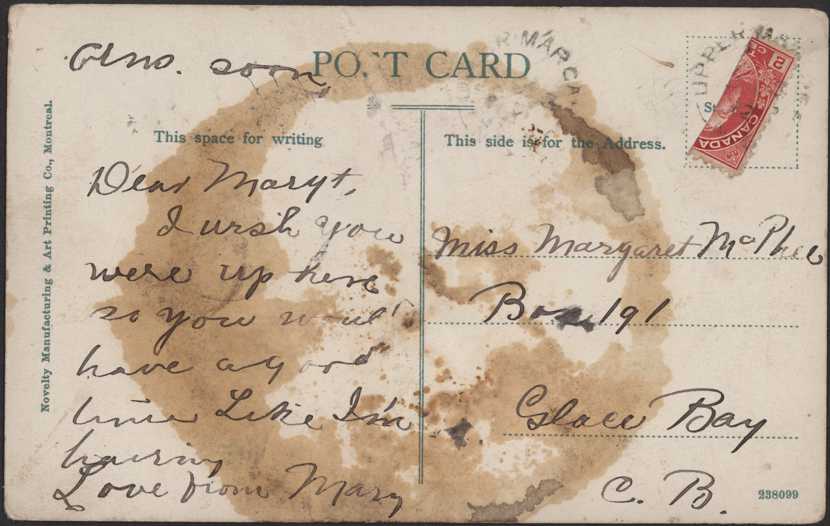 Ans. soon
POST CARD
This space for writing
This side is for the Address.
UPPER MA
R MARGA
2 CE
CANADA
Novelty Manufacturing & Art Printing Co., Montreal.
Dear Mary t,
I wish you
were up here
so you woul'
have a good
time Like I'm
having
Love from Mary
Miss Margaret McPhee
Box 191
Glace Bay
C. B.
238099